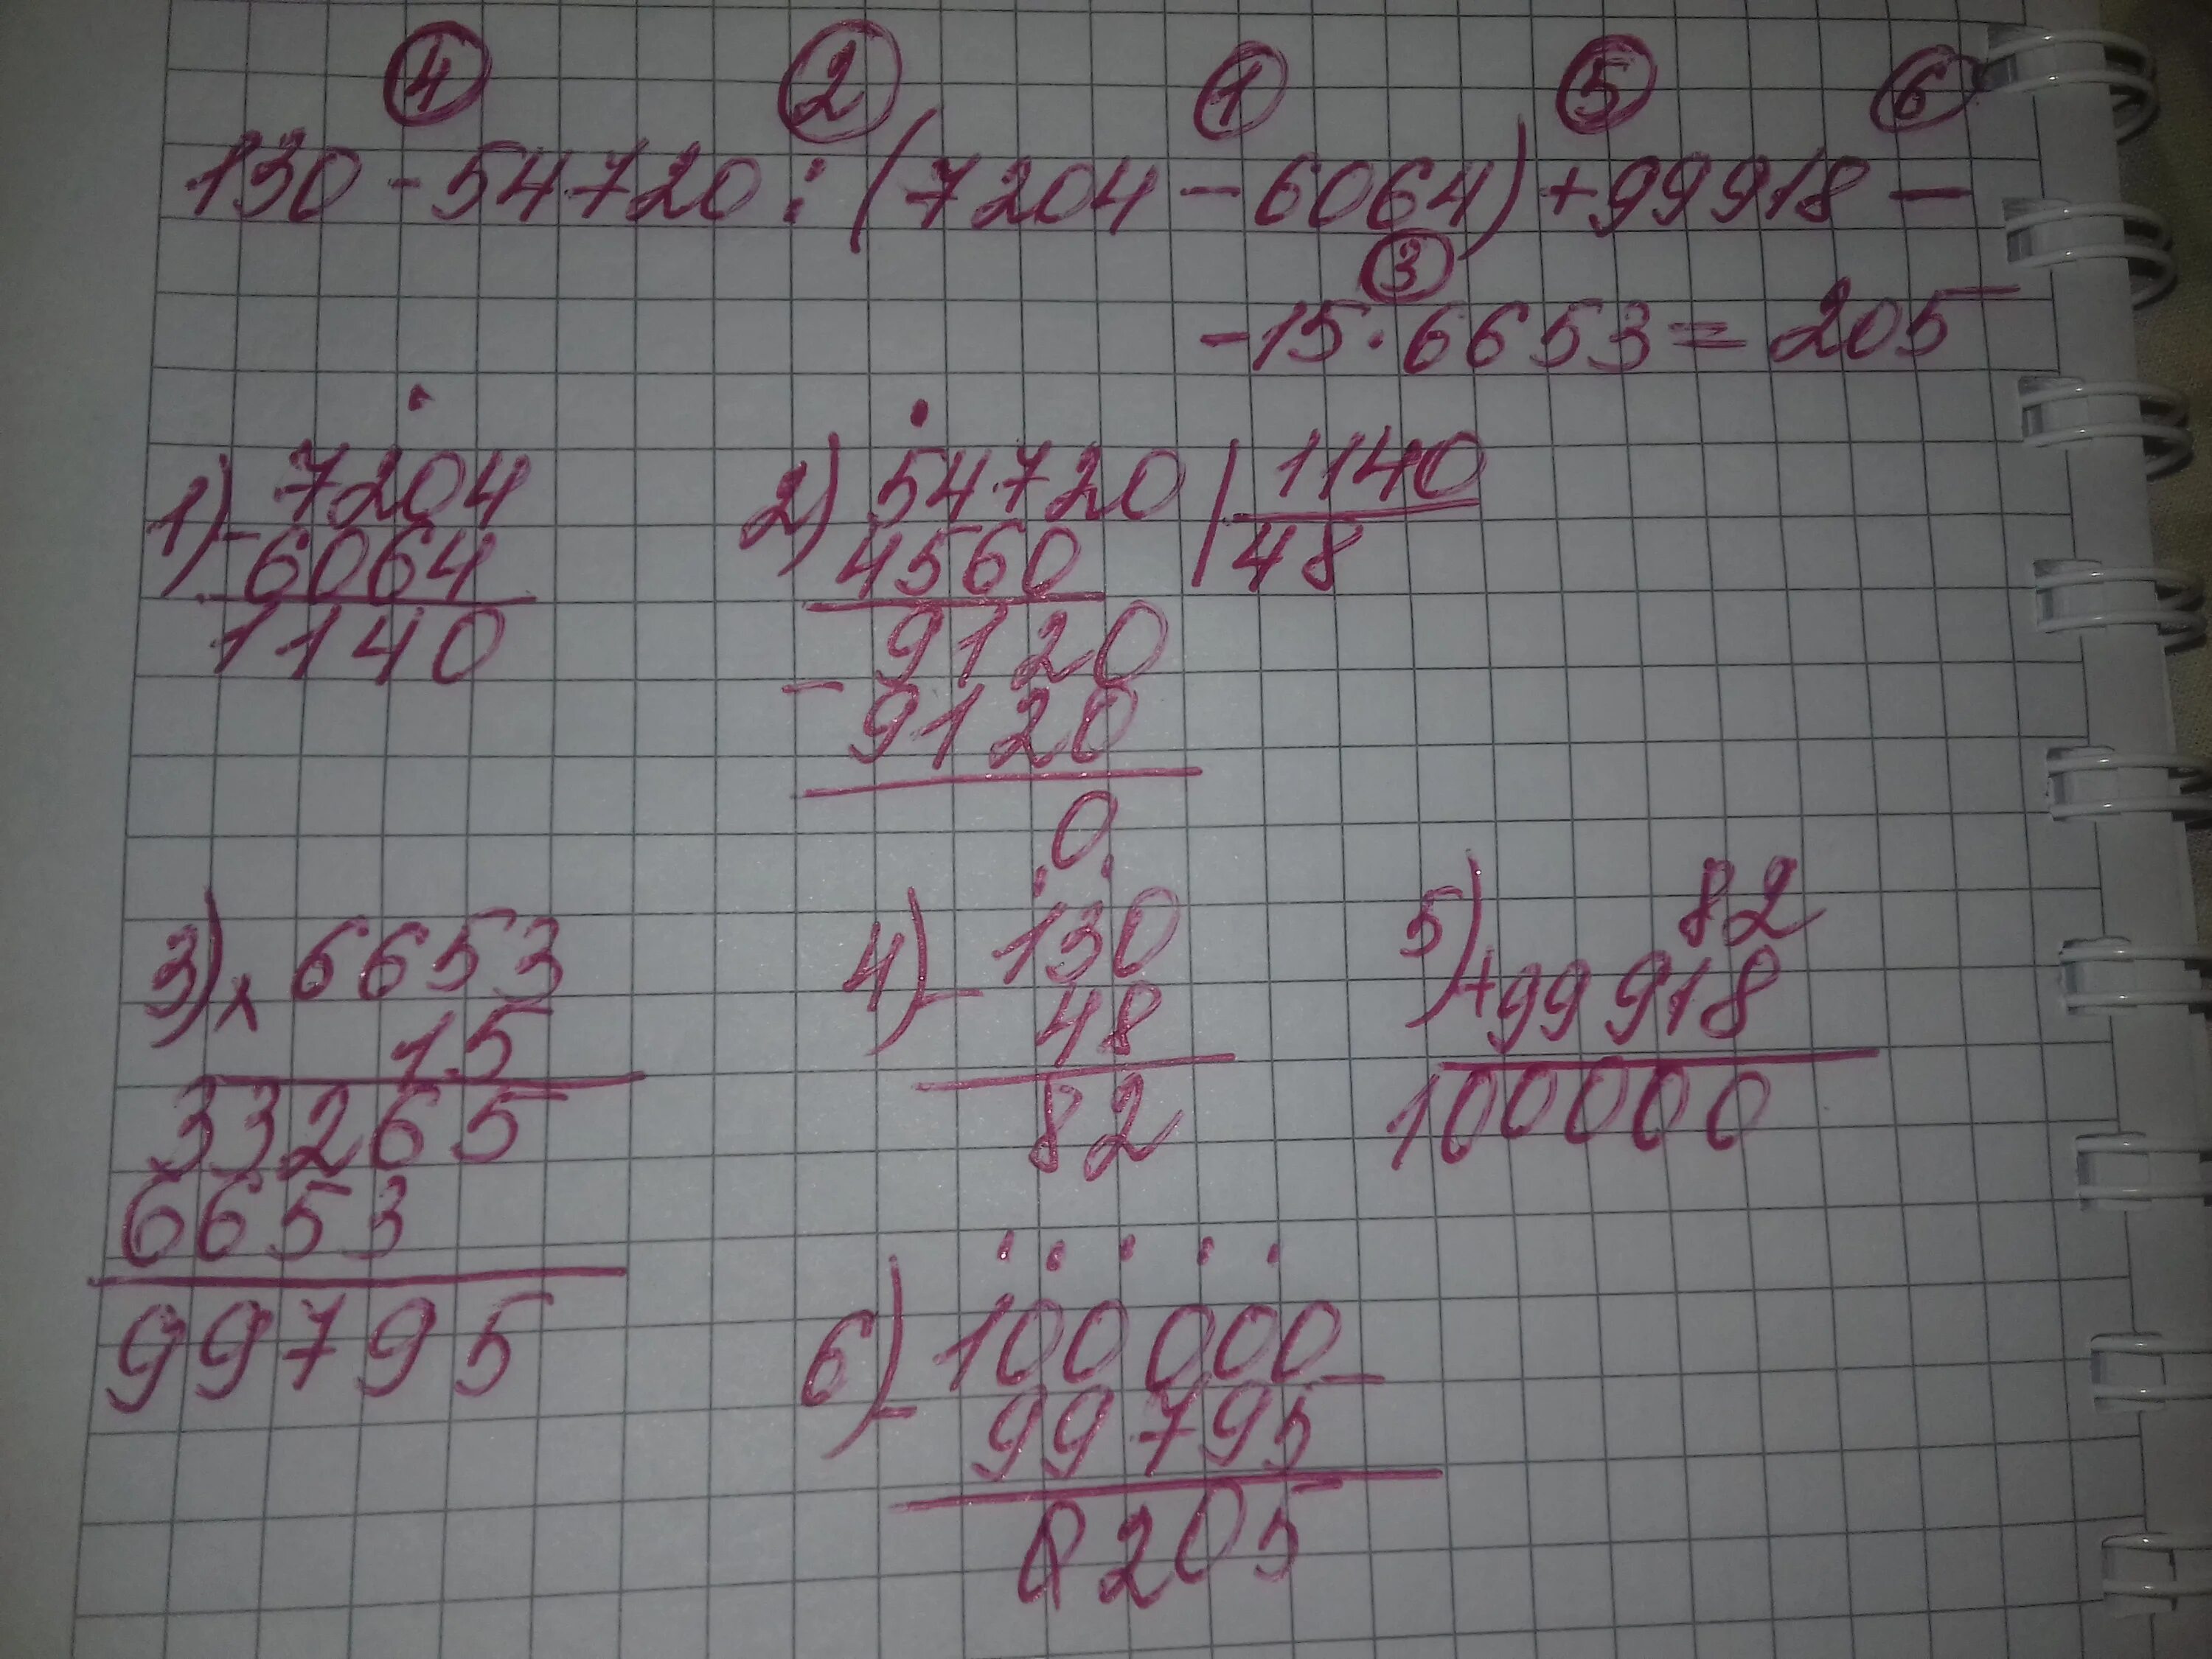 ④ ② ① ⑤ ⑥
130 - 54720 : (7204 - 6064) + 99918 -
③
- 15 · 6653 = 205
1) - 7204
6064
1140
2) 54720 | 1140
4560 | 48
9120
- 9120
0
3) x 6653
15
33265
6653
99795
4) - 130
48
82
5) 82
+ 99918
100000
6) - 100000
99795
205